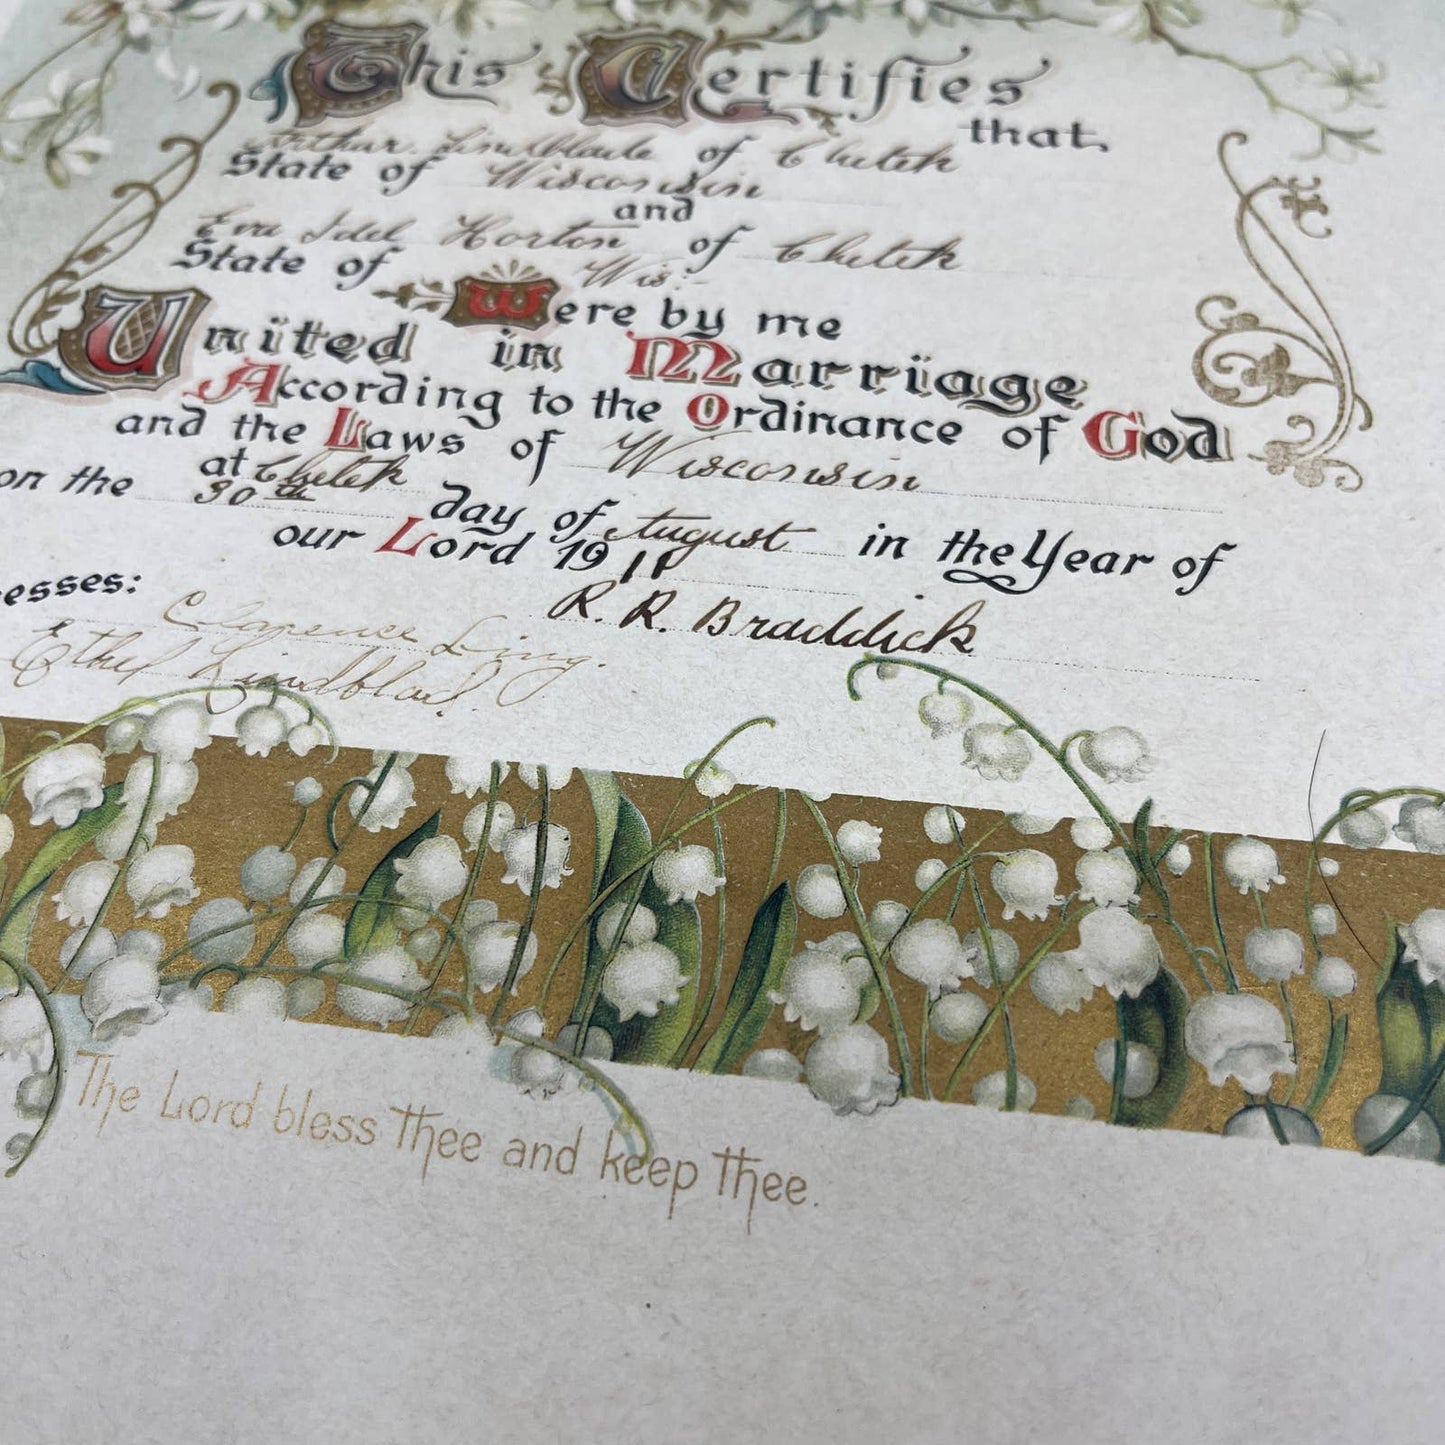 This Certifies
that
Arthur Lindblade of Chetek
State of Wisconsin
and
Eva Idel Horton of Chetek
State of Wis:-
Were by me
United in Marriage
According to the Ordinance of God
and the Laws of Wisconsin
at Chetek
on the 30th day of August in the Year of
our Lord 1911
esses:
R. R. Braddick
Clarence Ling.
Ethel Lindblad.
The Lord bless thee and keep thee.